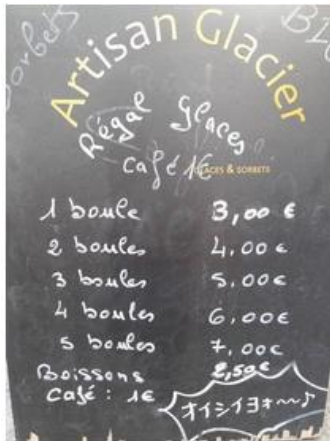 Sorbets
Artisan Glacier
Régal Glaces
Café 1€
GLACES & SORBETS
1 boule 3,00 €
2 boules 4,00€
3 boules 5,00€
4 boules 6,00€
5 boules 7,00€
Boissons 2,50€
Café : 1€
オイシイヨォ〜♪